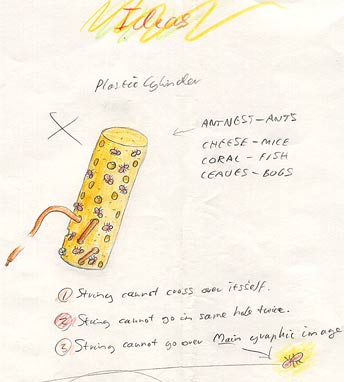 Ideas
Plastic Cylinder
ANT NEST - ANTS
CHEESE - MICE
CORAL - FISH
LEAVES - BUGS
① String cannot cross over itsself.
② String cannot go in same hole twice.
③ String cannot go over Main graphic image